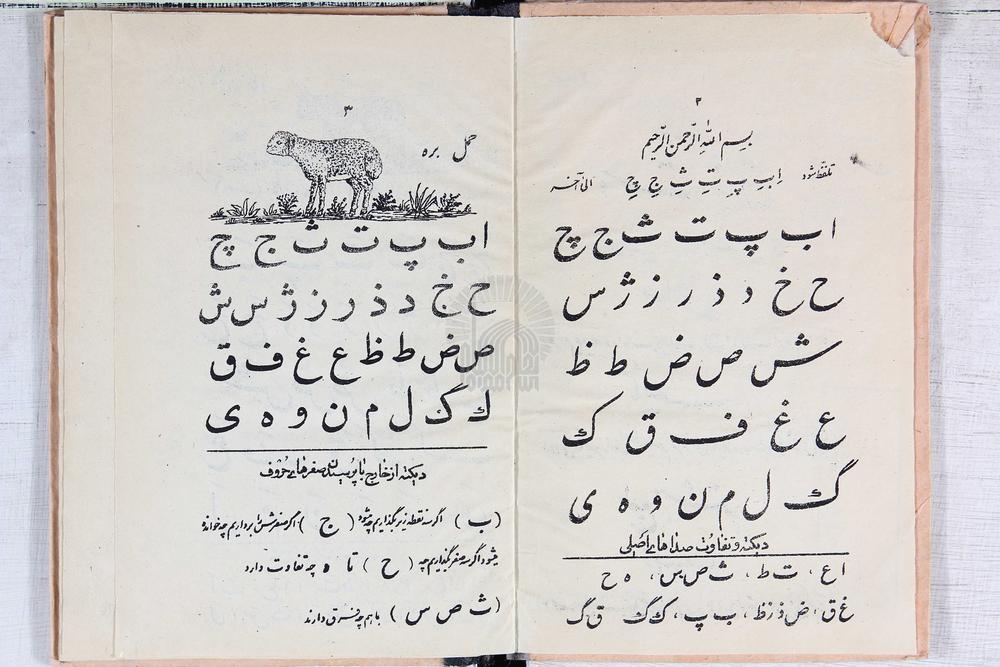 ۲
بسم الله الرحمن الرحیم
تلفظ شود اِ بِ پِ تِ ثِ جِ چِ الی آخر
ا ب پ ت ث ج چ
ح خ د ذ ر ز ژ س
ش ص ض ط ظ
ع غ ف ق ک
گ ل م ن و ه ی
دیکته و تفاوت صداهای اصلی
ا ع ، ت ط ، ث ص س ، ه ح
غ ق ، ض ذ ز ظ ، ب پ ، ک گ ق گ
۳
حمل بره
ا ب پ ت ث ج چ
ح خ د ذ ر ز ژ س ش
ص ض ط ظ ع غ ف ق
ک گ ل م ن و ه ی
دیکته از خارج با پرسیدن صفرهای حروف
(ب) اگر سه نقطه زیر بگذاریم چه میشود (ج) اگر صفرش را برداریم چه خوانده
میشود اگر سه صفر بگذاریم چه (ح) تا ه چه تفاوت دارد
(ث ص س) با هم چه فرق دارند